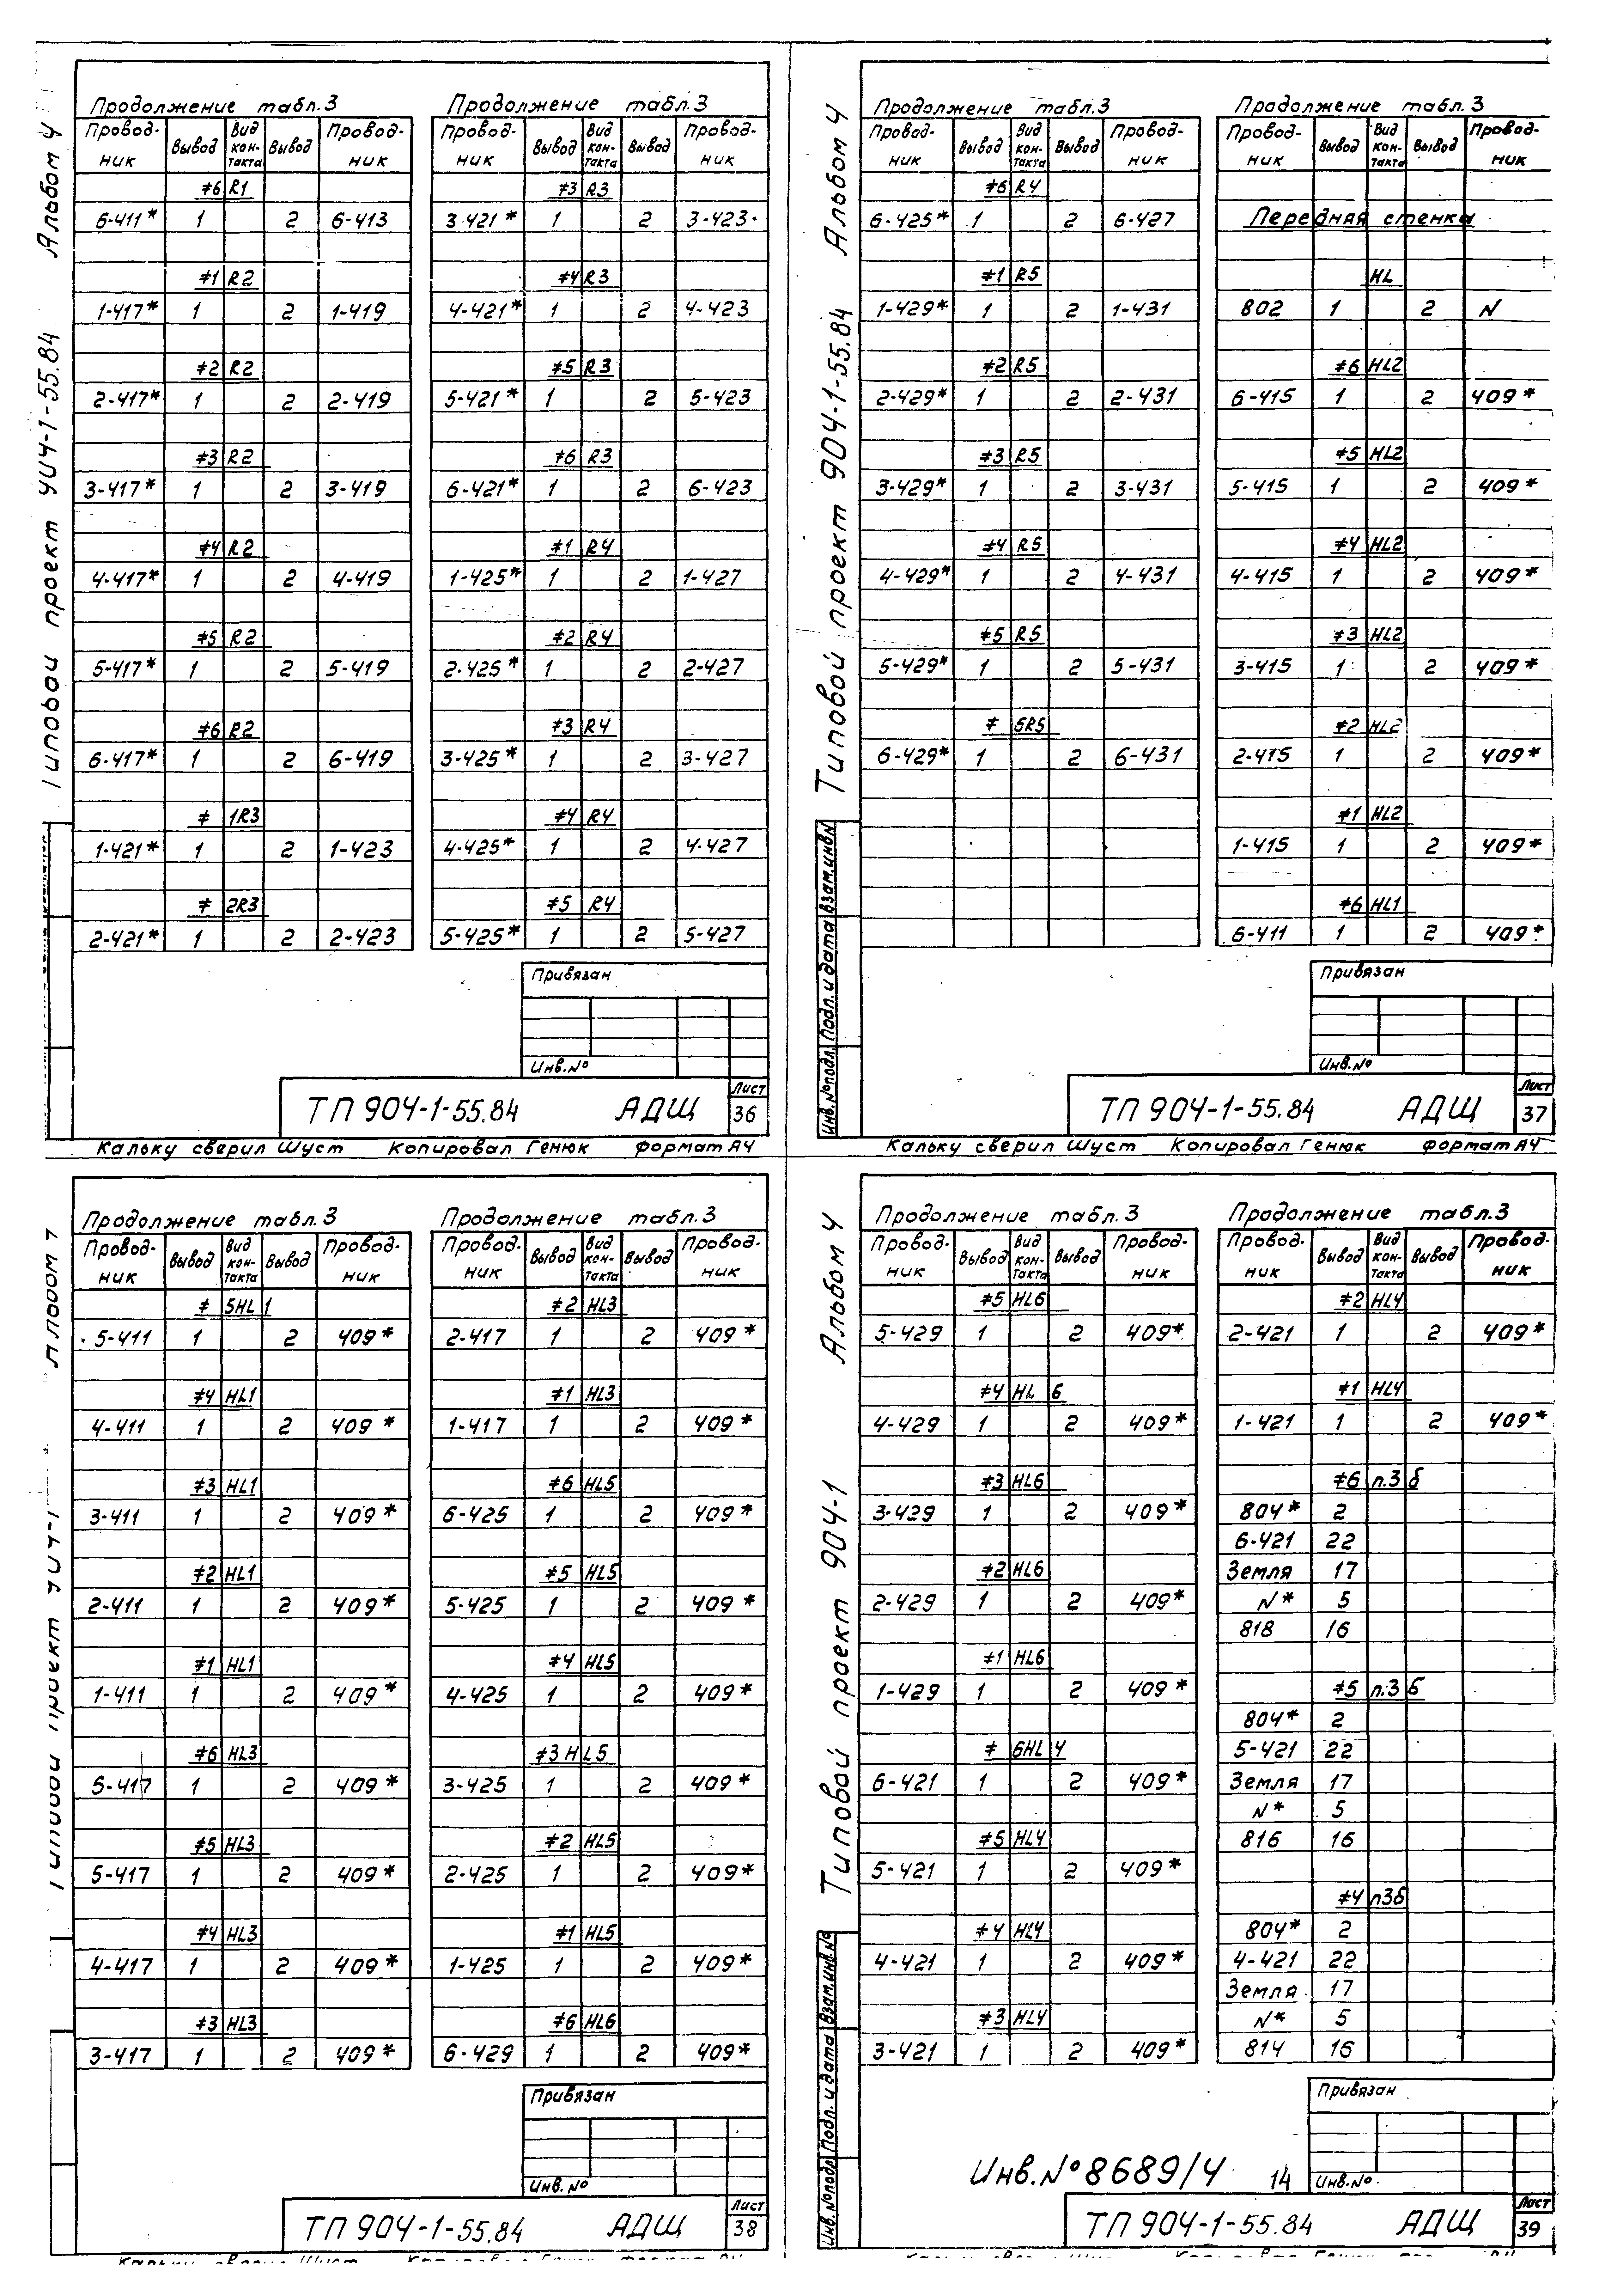 Альбом 4
Типовой проект 904-1-55.84
Продолжение табл.3
Провод-ник Вывод Вид кон-такта Вывод Провод-ник
≠6 R1
6-411* 1 2 6-413
≠1 R2
1-417* 1 2 1-419
≠2 R2
2-417* 1 2 2-419
≠3 R2
3-417* 1 2 3-419
≠4 R2
4-417* 1 2 4-419
≠5 R2
5-417* 1 2 5-419
≠6 R2
6-417* 1 2 6-419
≠ 1R3
1-421* 1 2 1-423
≠ 2R3
2-421* 1 2 2-423
Продолжение табл.3
Провод-ник Вывод Вид кон-такта Вывод Провод-ник
≠3 R3
3-421* 1 2 3-423
≠4 R3
4-421* 1 2 4-423
≠5 R3
5-421* 1 2 5-423
≠6 R3
6-421* 1 2 6-423
≠1 R4
1-425* 1 2 1-427
≠2 R4
2-425* 1 2 2-427
≠3 R4
3-425* 1 2 3-427
≠4 R4
4-425* 1 2 4-427
≠5 R4
5-425* 1 2 5-427
Привязан
Инв.№
ТП 904-1-55.84 АДЩ
Лист
36
Кальку сверил Шуст Копировал Генюк формат А4
Альбом 4
Типовой проект 904-1-55.84
Взам.инв№
Подп. и дата
Инв.№подл.
Продолжение табл.3
Провод-ник Вывод Вид кон-такта Вывод Провод-ник
≠6 R4
6-425* 1 2 6-427
≠1 R5
1-429* 1 2 1-431
≠2 R5
2-429* 1 2 2-431
≠3 R5
3-429* 1 2 3-431
≠4 R5
4-429* 1 2 4-431
≠5 R5
5-429* 1 2 5-431
≠ 6R5
6-429* 1 2 6-431
Продолжение табл.3
Провод-ник Вывод Вид кон-такта Вывод Провод-ник
Передняя стенка
HL
802 1 2 N
≠6 HL2
6-415 1 2 409*
≠5 HL2
5-415 1 2 409*
≠4 HL2
4-415 1 2 409*
≠3 HL2
3-415 1 2 409*
≠2 HL2
2-415 1 2 409*
≠1 HL2
1-415 1 2 409*
≠6 HL1
6-411 1 2 409*
Привязан
Инв.№
ТП 904-1-55.84 АДЩ
Лист
37
Кальку сверил Шуст Копировал Генюк формат А4
Продолжение табл.3
Провод-ник Вывод Вид кон-такта Вывод Провод-ник
≠ 5HL 1
5-411 1 2 409*
≠4 HL1
4-411 1 2 409*
≠3 HL1
3-411 1 2 409*
≠2 HL1
2-411 1 2 409*
≠1 HL1
1-411 1 2 409*
≠6 HL3
6-417 1 2 409*
≠5 HL3
5-417 1 2 409*
≠4 HL3
4-417 1 2 409*
≠3 HL3
3-417 1 2 409*
Продолжение табл.3
Провод-ник Вывод Вид кон-такта Вывод Провод-ник
≠2 HL3
2-417 1 2 409*
≠1 HL3
1-417 1 2 409*
≠6 HL5
6-425 1 2 409*
≠5 HL5
5-425 1 2 409*
≠4 HL5
4-425 1 2 409*
≠3 HL5
3-425 1 2 409*
≠2 HL5
2-425 1 2 409*
≠1 HL5
1-425 1 2 409*
≠6 HL6
6-429 1 2 409*
Привязан
Инв.№
ТП 904-1-55.84 АДЩ
Лист
38
Альбом 4
Типовой проект 904-1
Взам.инв.№
Подп. и дата
Инв.№подл
Продолжение табл.3
Провод-ник Вывод Вид кон-такта Вывод Провод-ник
≠5 HL6
5-429 1 2 409*
≠4 HL 6
4-429 1 2 409*
≠3 HL6
3-429 1 2 409*
≠2 HL6
2-429 1 2 409*
≠1 HL6
1-429 1 2 409*
≠ 6HL 4
6-421 1 2 409*
≠5 HL4
5-421 1 2 409*
≠4 HL4
4-421 1 2 409*
≠3 HL4
3-421 1 2 409*
Продолжение табл.3
Провод-ник Вывод Вид кон-такта Вывод Провод-ник
≠2 HL4
2-421 1 2 409*
≠1 HL4
1-421 1 2 409*
≠6 п.3 б
804* 2
6-421 22
Земля 17
N* 5
818 16
≠5 п.3 б
804* 2
5-421 22
Земля 17
N* 5
816 16
≠4 п3б
804* 2
4-421 22
Земля 17
N* 5
814 16
Привязан
Инв.№
Инв.№8689/4 14
ТП 904-1-55.84 АДЩ
Лист
39